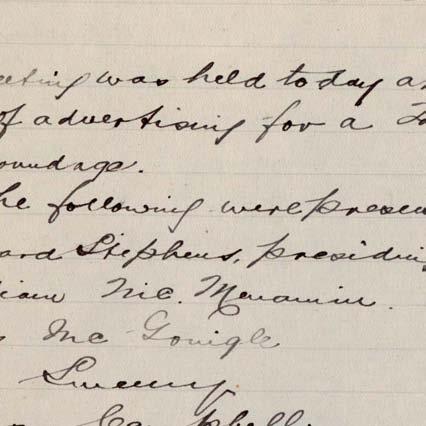 eeting was held today a
of advertising for a
oundage.
he following were presen
ard Stephens, presiding
liam Mc. Menamin.
Mc Gonigle
Sweeny
Campbell